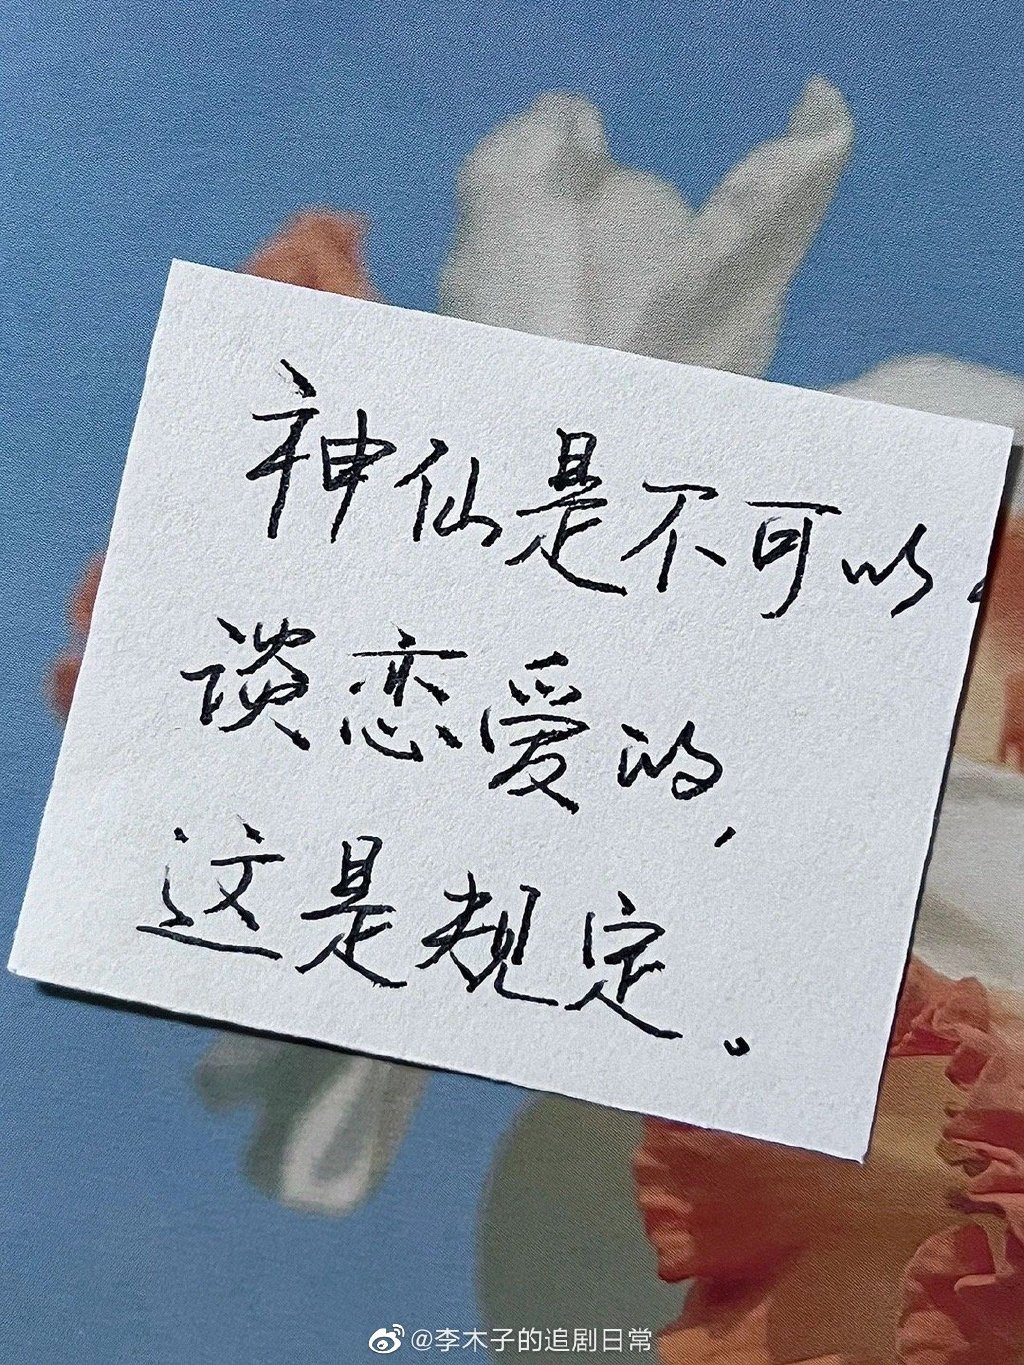 神仙是不可以
谈恋爱的,
这是规定。
@李木子的追剧日常